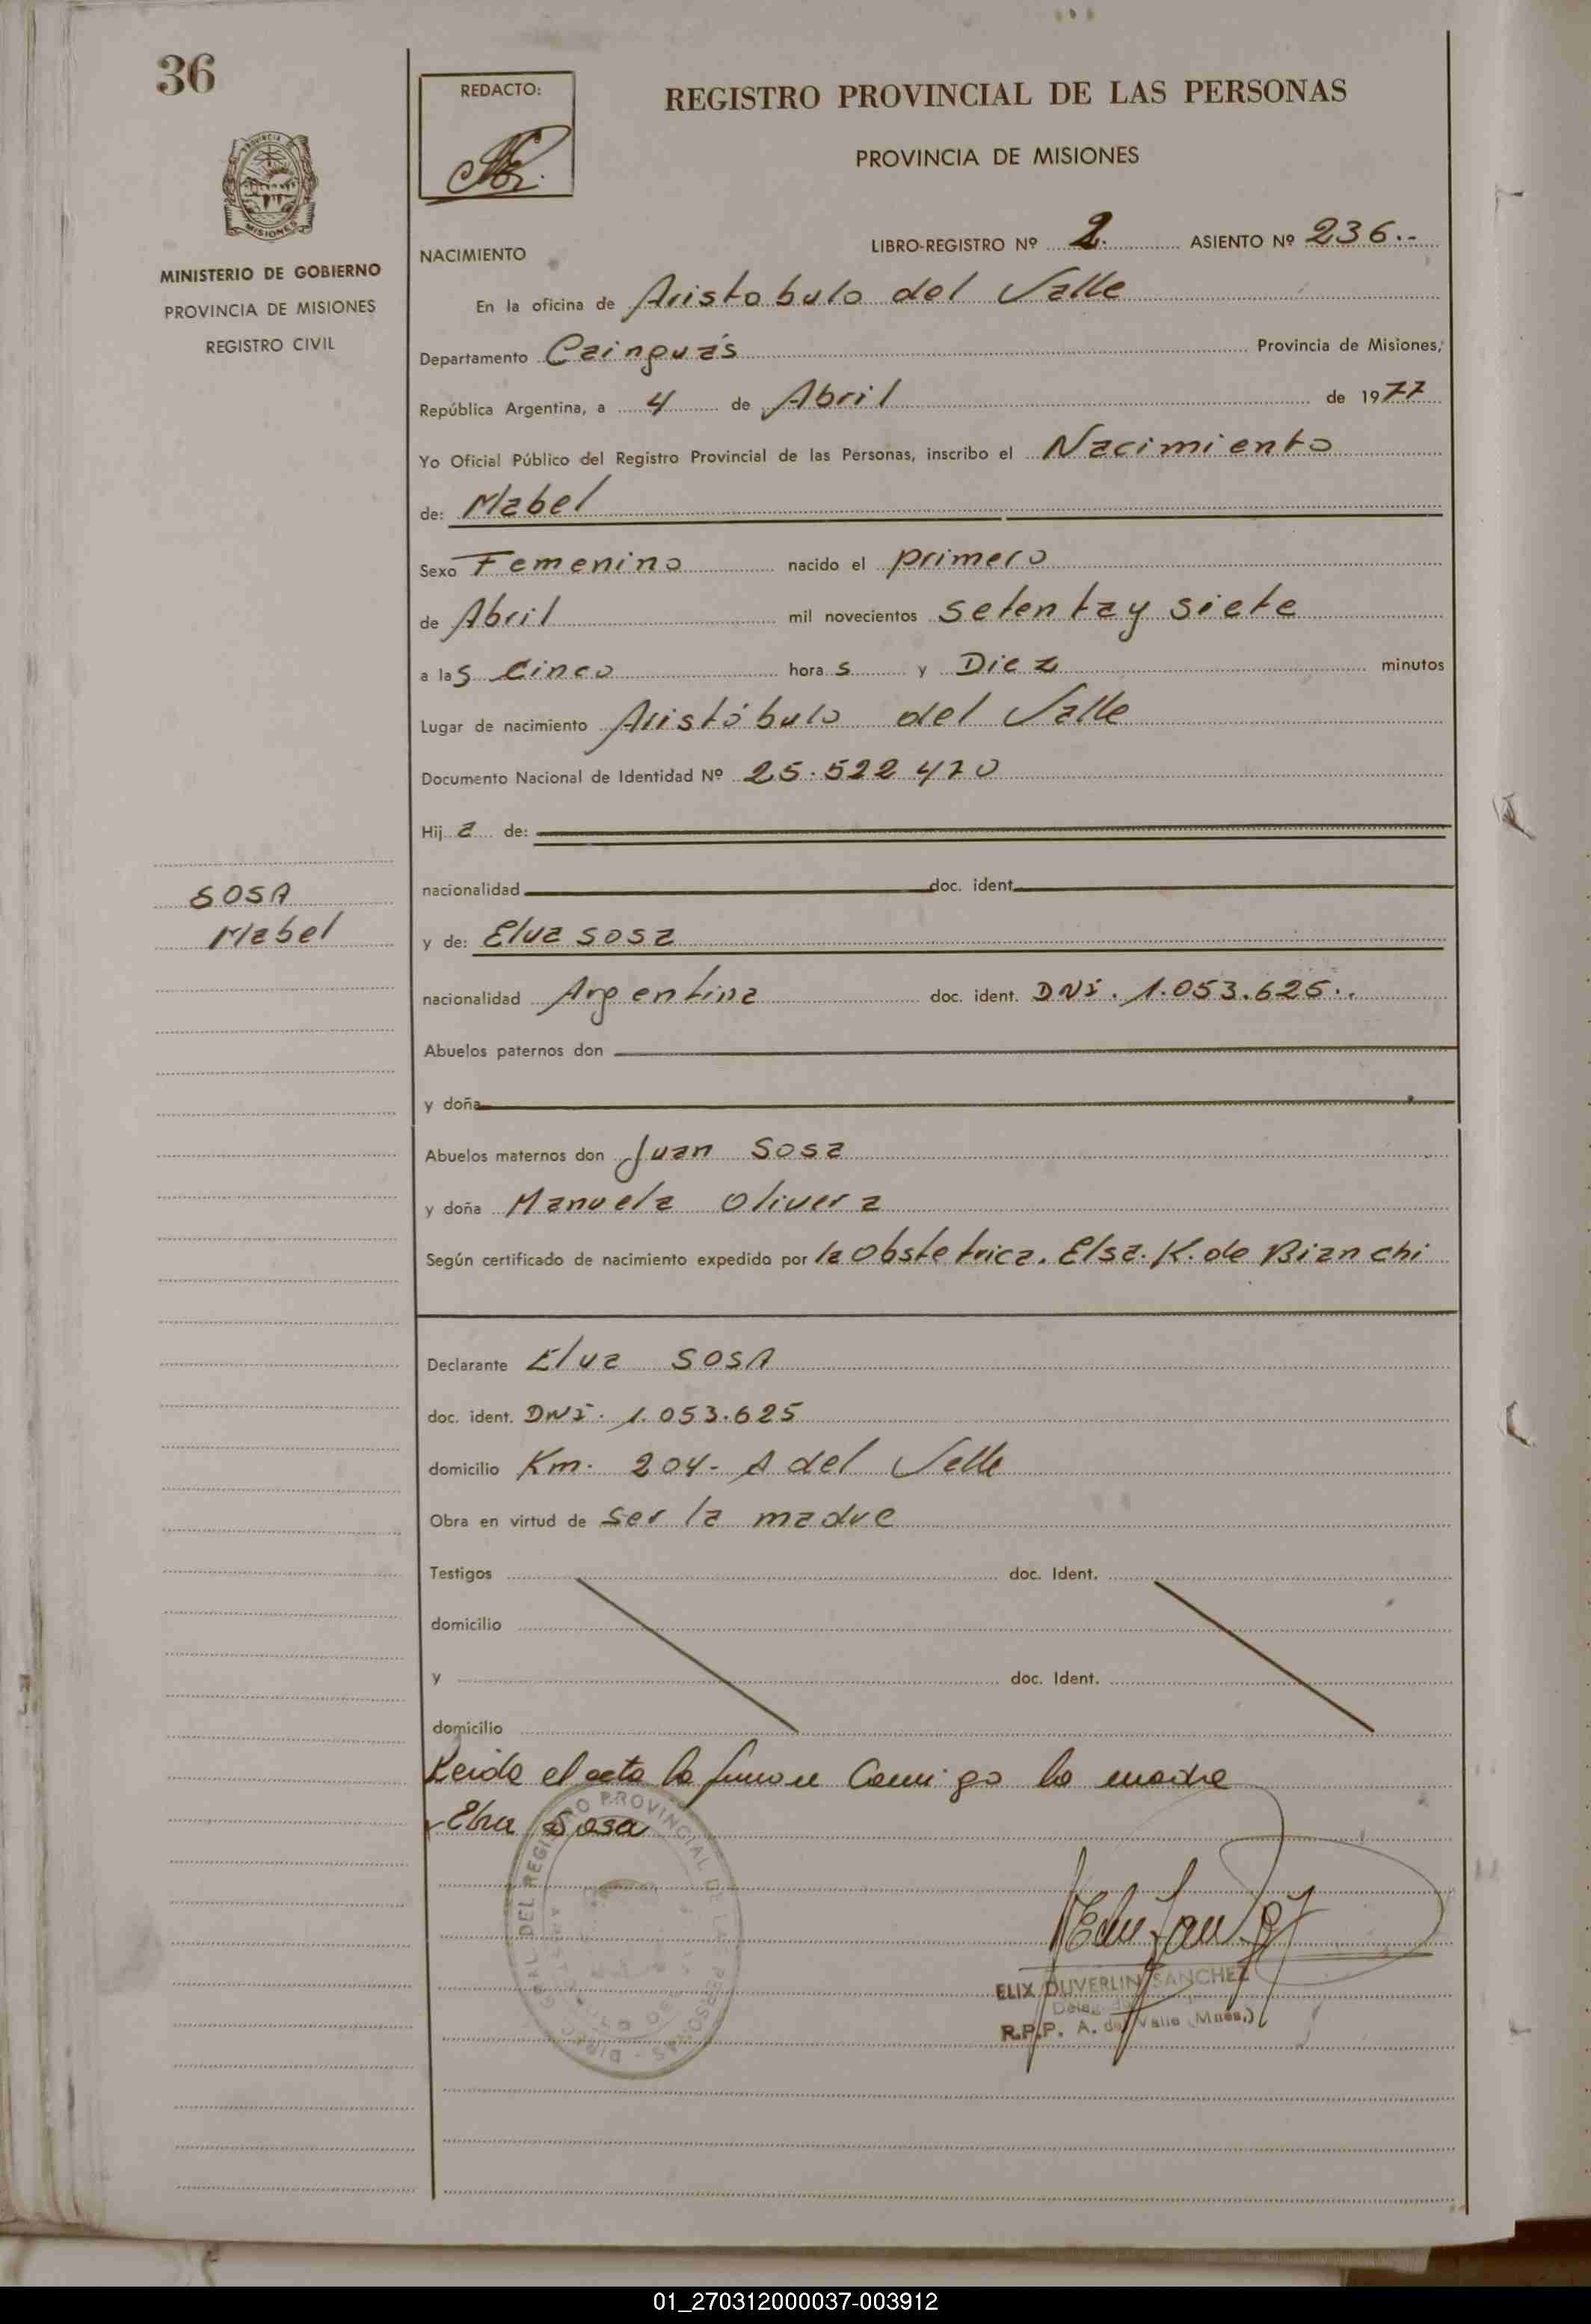 36
REDACTO:
REGISTRO PROVINCIAL DE LAS PERSONAS
PROVINCIA DE MISIONES
MISIONES
MINISTERIO DE GOBIERNO
PROVINCIA DE MISIONES
REGISTRO CIVIL
LIBRO-REGISTRO Nº 2. ASIENTO Nº 236.-
NACIMIENTO
En la oficina de Aristobulo del Valle
Departamento Cainguás Provincia de Misiones,
República Argentina, a 4 de Abril de 1977
Yo Oficial Público del Registro Provincial de las Personas, inscribo el Nacimiento
de: Mabel
Sexo Femenino nacido el primero
de Abril mil novecientos setenta y siete
a las cinco horas y Diez minutos
Lugar de nacimiento Aristóbulo del Valle
Documento Nacional de Identidad Nº 25.522 470
Hija de:
nacionalidad doc. ident.
SOSA
Mabel
y de: Elva Sosa
nacionalidad Argentina doc. ident. DNI. 1.053.625..
Abuelos paternos don
y doña
Abuelos maternos don Juan Sosa
y doña Manuela Olivera
Según certificado de nacimiento expedido por la Obstetrica. Elsa. K. de Bianchi
Declarante Elva SOSA
doc. ident. DNI. 1.053.625
domicilio Km. 204- A del Valle
Obra en virtud de ser la madre
Testigos doc. Ident.
domicilio
y doc. Ident.
domicilio
Leida el acta la firma Conmigo la madre
Elva Sosa
DEL REGISTRO PROVINCIAL DE LAS PERSONAS
ELIX DUVERLIN SANCHEZ
R.P.P. A. del Valle (Mnes.)
01_270312000037-003912